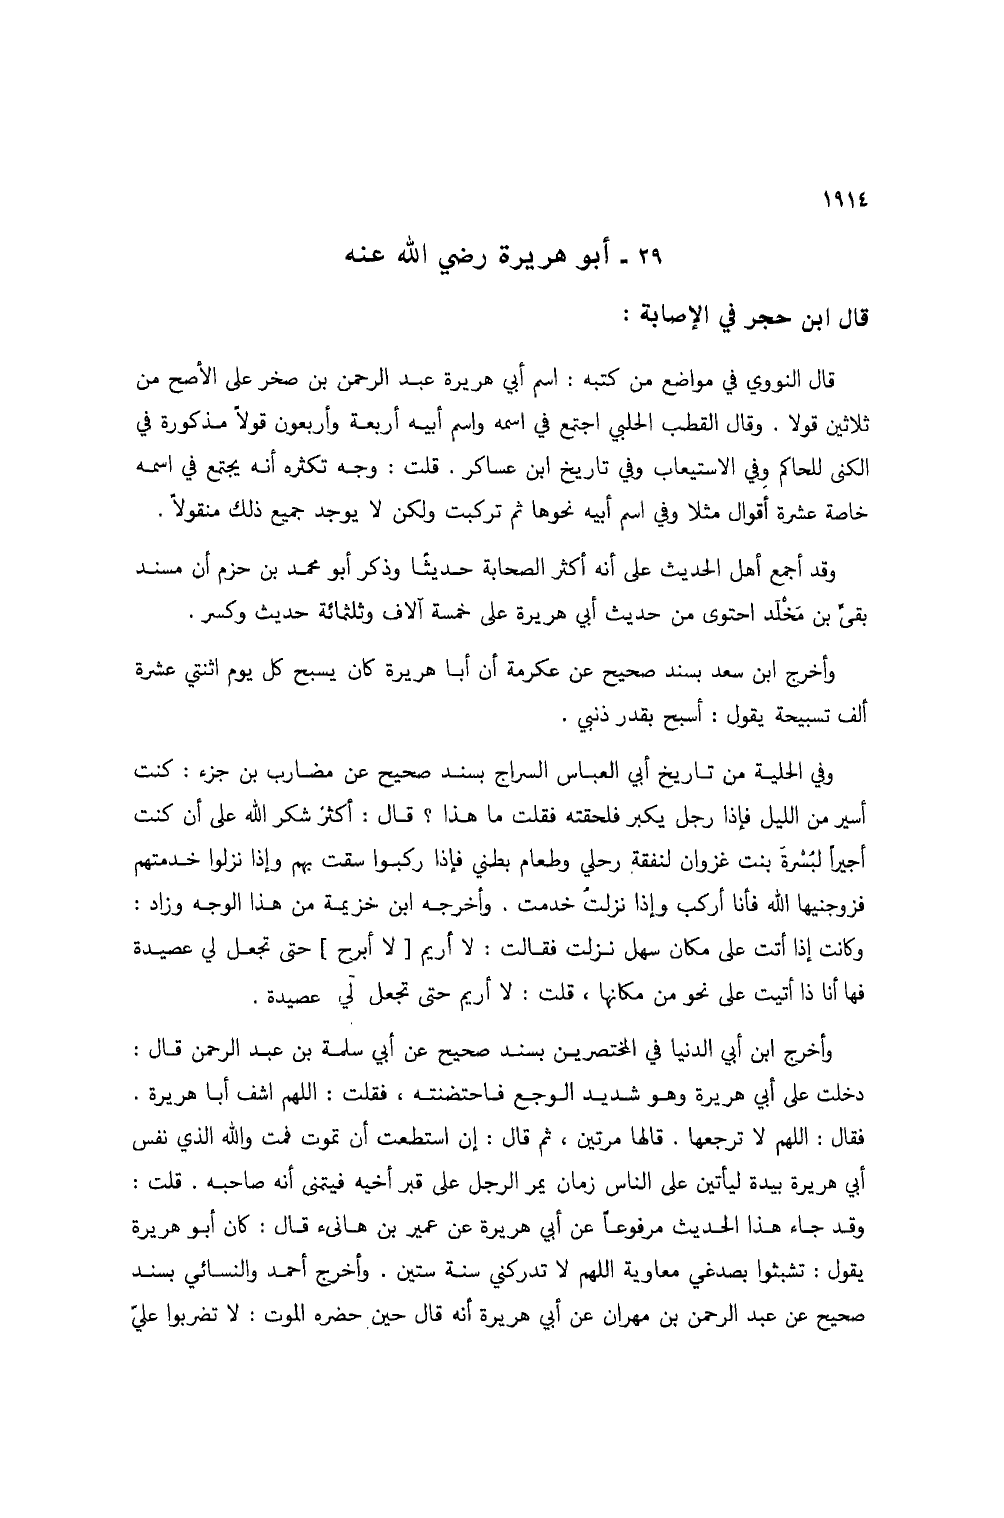 ١٩١٤
٢٩ - أبو هريرة رضي الله عنه
قال ابن حجر في الإصابة :
قال النووي في مواضع من كتبه : اسم أبي هريرة عبد الرحمن بن صخر على الأصح من
ثلاثين قولا . وقال القطب الحلبي اجتمع في اسمه واسم أبيه أربعة وأربعون قولاً مذكورة في
الكنى للحاكم وفي الاستيعاب وفي تاريخ ابن عساكر . قلت : وجه تكثره أنه يجتمع في اسمه
خاصة عشرة أقوال مثلا وفي اسم أبيه نحوها ثم تركبت ولكن لا يوجد جميع ذلك منقولاً .
وقد أجمع أهل الحديث على أنه أكثر الصحابة حديثًا وذكر أبو محمد بن حزم أن مسند
بقيّ بن مَخْلَد احتوى من حديث أبي هريرة على خمسة آلاف وثلثمائة حديث وكسر .
وأخرج ابن سعد بسند صحيح عن عكرمة أن أبا هريرة كان يسبح كل يوم اثنتي عشرة
ألف تسبيحة يقول : أسبح بقدر ذنبي .
وفي الحلية من تاريخ أبي العباس السراج بسند صحيح عن مضارب بن جزء : كنت
أسير من الليل فإذا رجل يكبر فلحقته فقلت ما هذا ؟ قال : أكثرُ شكر الله على أن كنت
أجيراً لبُسْرةَ بنت غزوان لنفقةِ رحلي وطعام بطني فإذا ركبوا سقت بهم وإذا نزلوا خدمتهم
فزوجنيها الله فأنا أركب وإذا نزلتُ خدمت . وأخرجه ابن خزيمة من هذا الوجه وزاد :
وكانت إذا أتت على مكان سهل نزلت فقالت : لا أريم [ لا أبرح ] حتى تجعل لي عصيدة
فها أنا ذا أتيت على نحو من مكانها ، قلت : لا أريم حتى تجعل لي عصيدة .
وأخرج ابن أبي الدنيا في المختصرين بسند صحيح عن أبي سلمة بن عبد الرحمن قال :
دخلت على أبي هريرة وهو شديد الوجع فاحتضنته ، فقلت : اللهم اشف أبا هريرة .
فقال : اللهم لا ترجعها . قالها مرتين ، ثم قال : إن استطعت أن تموت فمت والله الذي نفس
أبي هريرة بيدة ليأتين على الناس زمان يمر الرجل على قبر أخيه فيتمنى أنه صاحبه . قلت :
وقد جاء هذا الحديث مرفوعاً عن أبي هريرة عن عمير بن هانىء قال : كان أبو هريرة
يقول : تشبثوا بصدغي معاوية اللهم لا تدركني سنة ستين . وأخرج أحمد والنسائي بسند
صحيح عن عبد الرحمن بن مهران عن أبي هريرة أنه قال حين حضره الموت : لا تضربوا عليّ